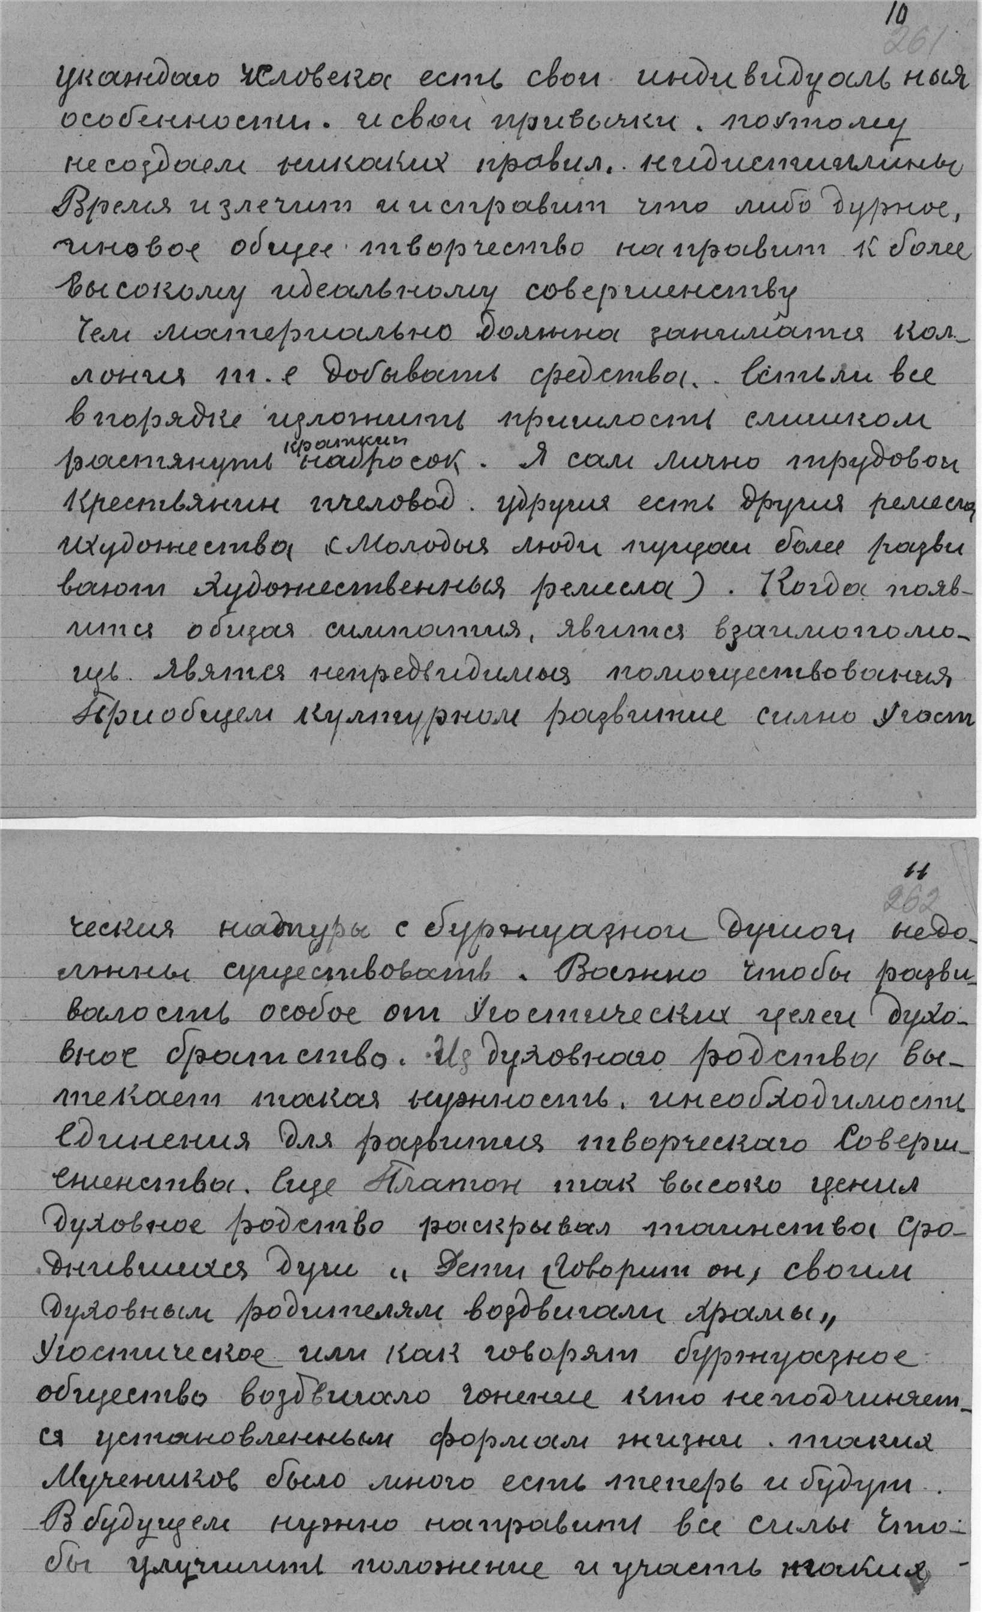 10
261
укаждаго человека есть свои индивидуальныя
особенности. и свои привычки. поэтому
несоздаем никаких правил. нидистиплины
Время излечит и исправит что либо дурное,
иновое общее творчество направит к более
высокому идеальному совершенству
Чем материально должна заниматся кол-
лония т.е добывать средства. Естьли все
впорядке изложить пришлость слишком
краткий
растянуть набросок. Я сам лично трудовой
крестьянин пчеловод. удругия есть другия ремесла
ихудожества (Молодыя люди пущай более разви
вают художественныя ремесла). Когда появ-
ится общая симпатия, явится взаимопомо-
щь. явятся непредвидимыя помоществования
Приобщем культурном развитие силно Эгост
11
262
ческия надтуры с буржуазной душой недо-
лжны существовать. Важно чтобы разви-
валость особое от Эгостических целей духо-
вное братство. Из духовнаго родства вы-
текает такая нужность. инеобходимость
единения для развития творческаго Соверш-
енненства. Еще Платон так высоко ценил
духовное родство раскрывал таинства сро-
днившихся душ „ Дети (Говорит он, своим
духовным родителям воздвигали храмы„
Эгостическое или как говорят буржуазное
общество воздвигало гонение кто неподчиняет-
ся установленным формам жизни. таких
Мучеников было много есть теперь и будут.
Вбудущем нужно направить все силы что-
бы улучшить положение и участь таких